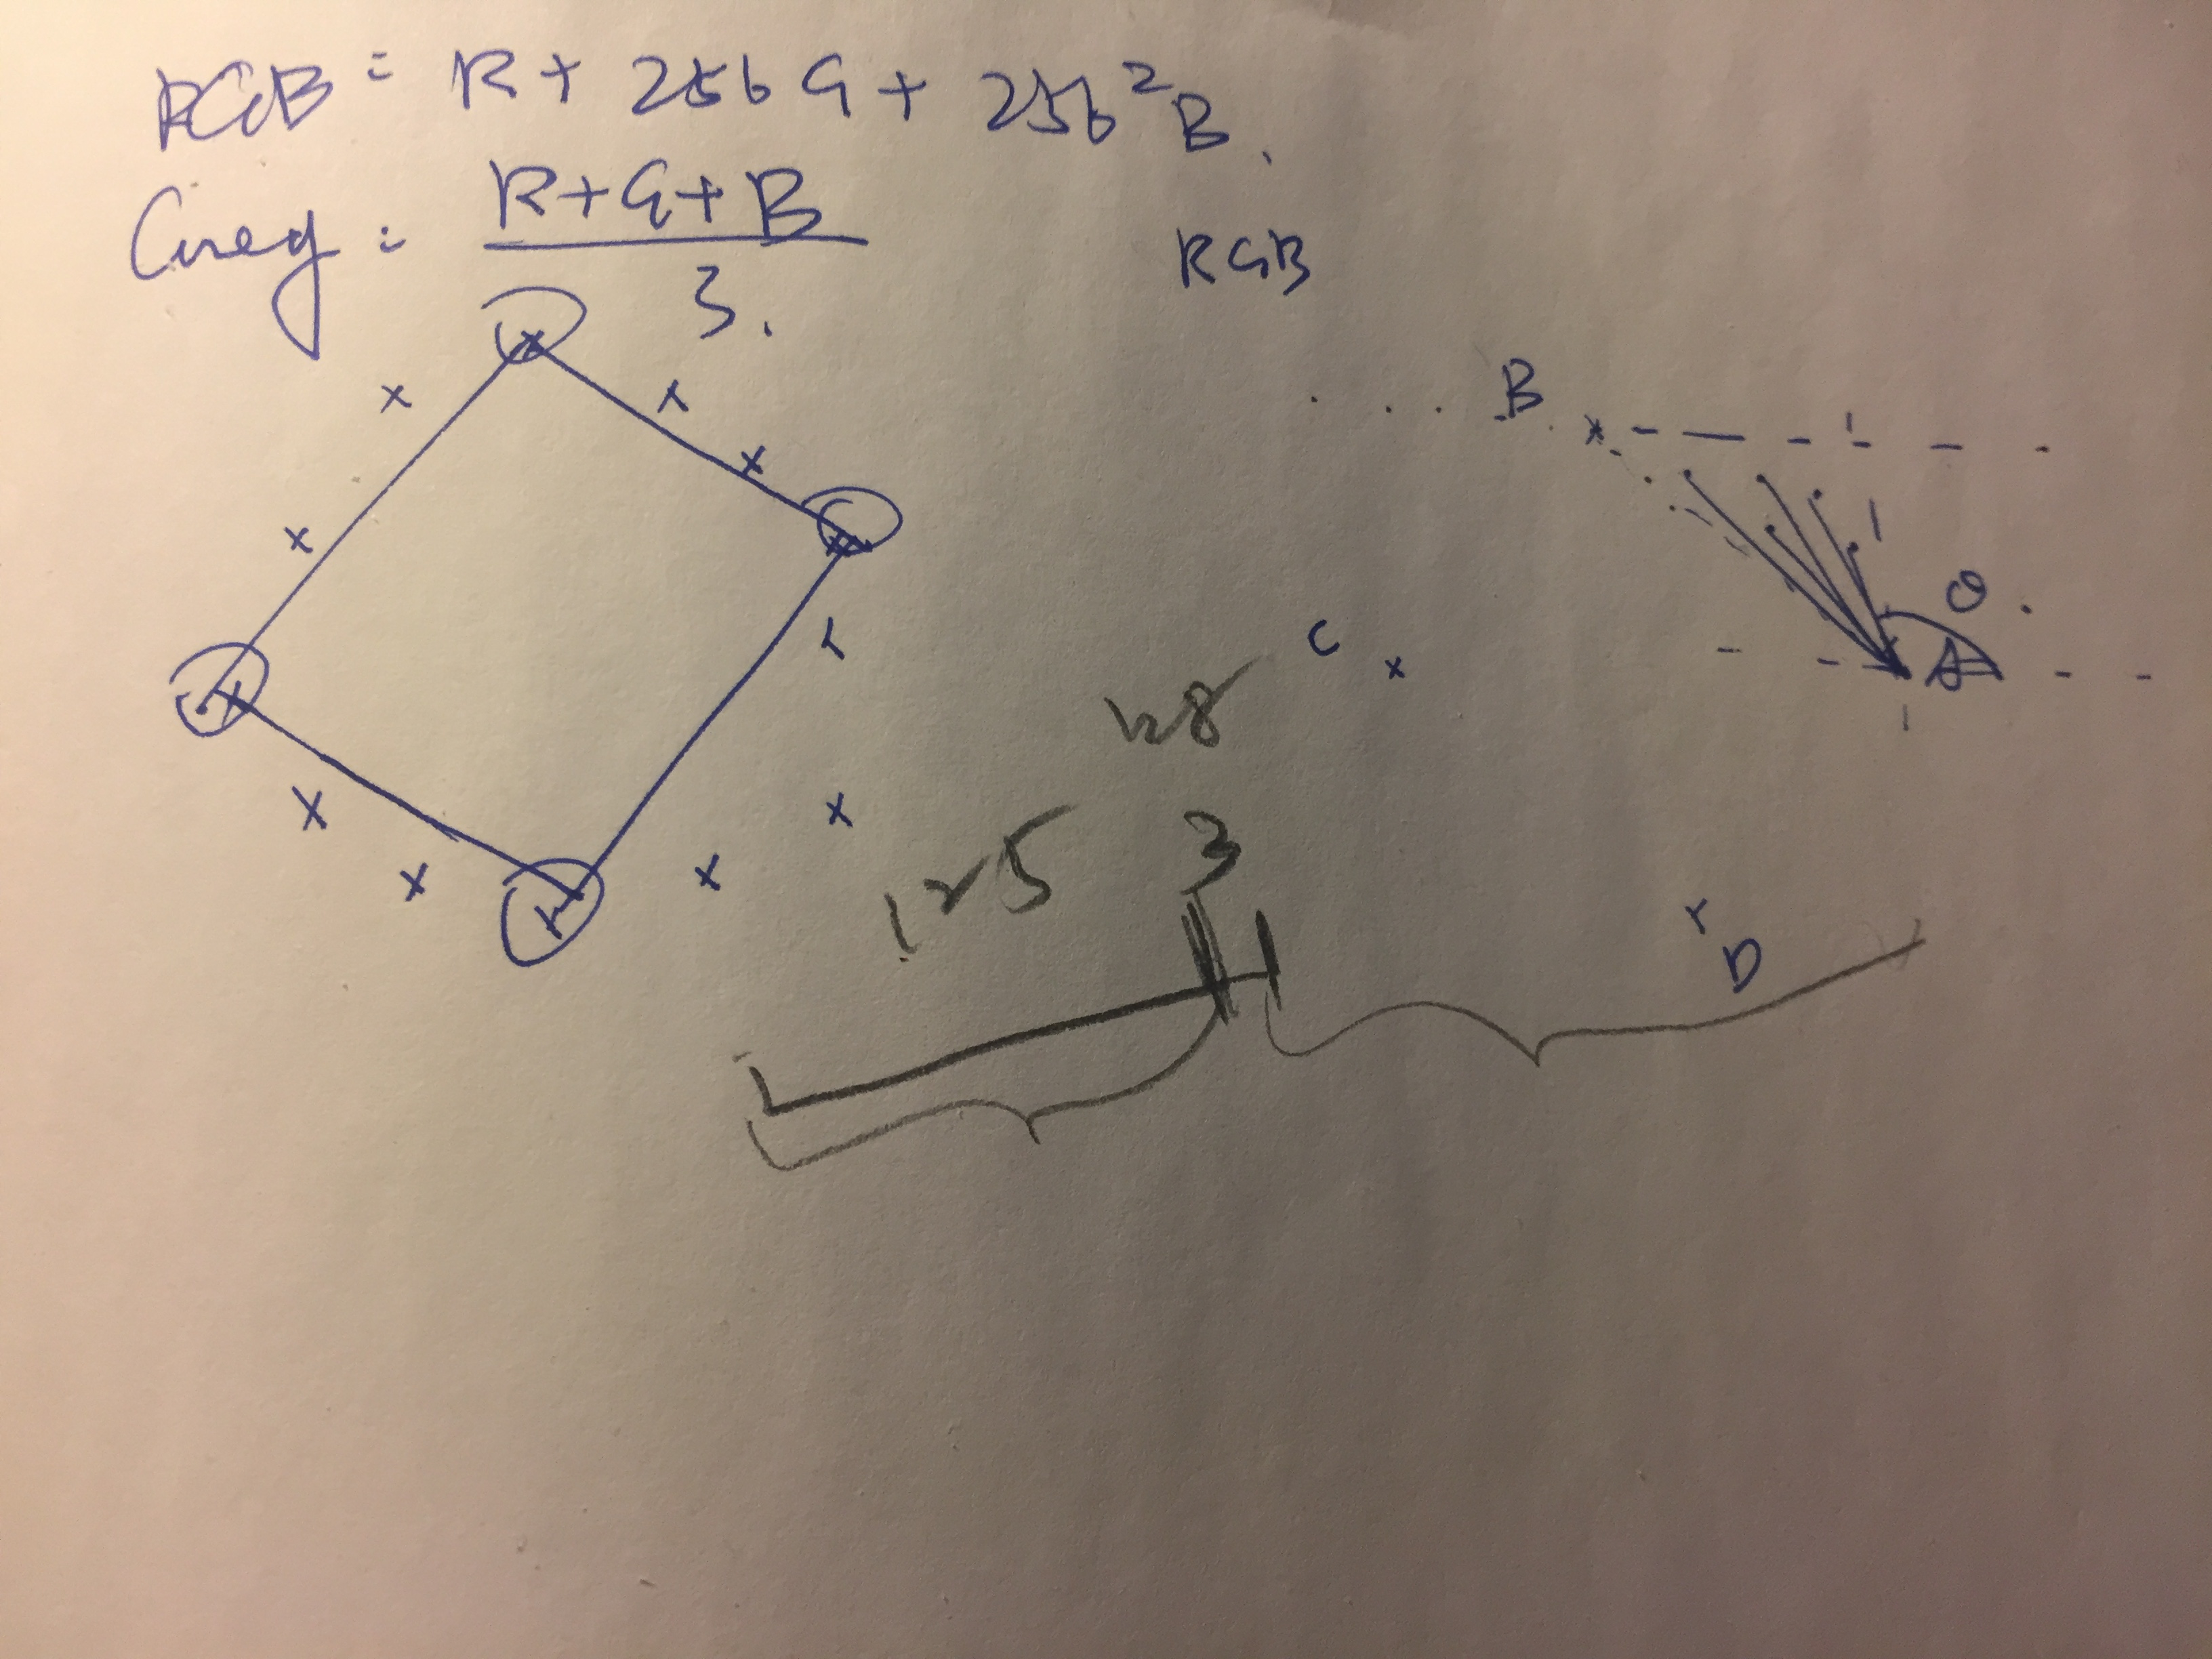 RGB = R + 256G + 256²B.
Grey = R+G+B
3.
RGB
B
θ.
A
C
128
125 3
D